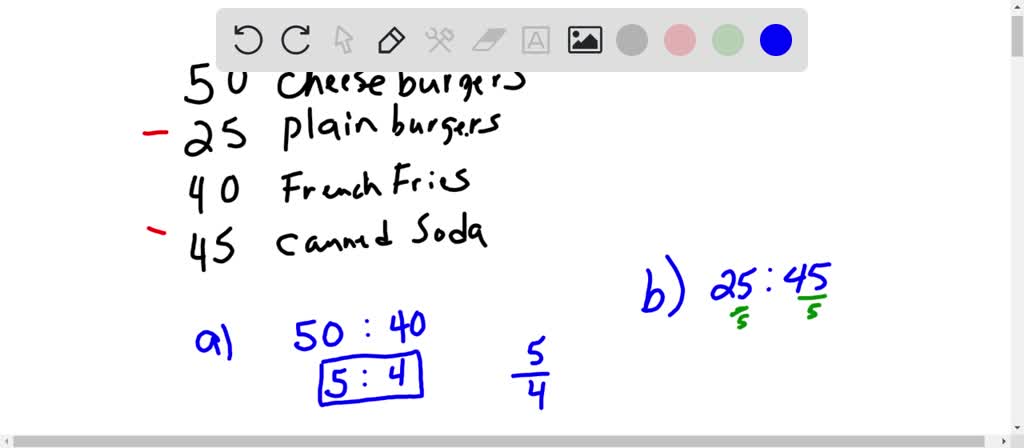 50 Cheese burgers
- 25 plain burgers
40 French Fries
- 45 Canned Soda
a) 50 : 40
5 : 4
5
4
b) 25 : 45
5 5